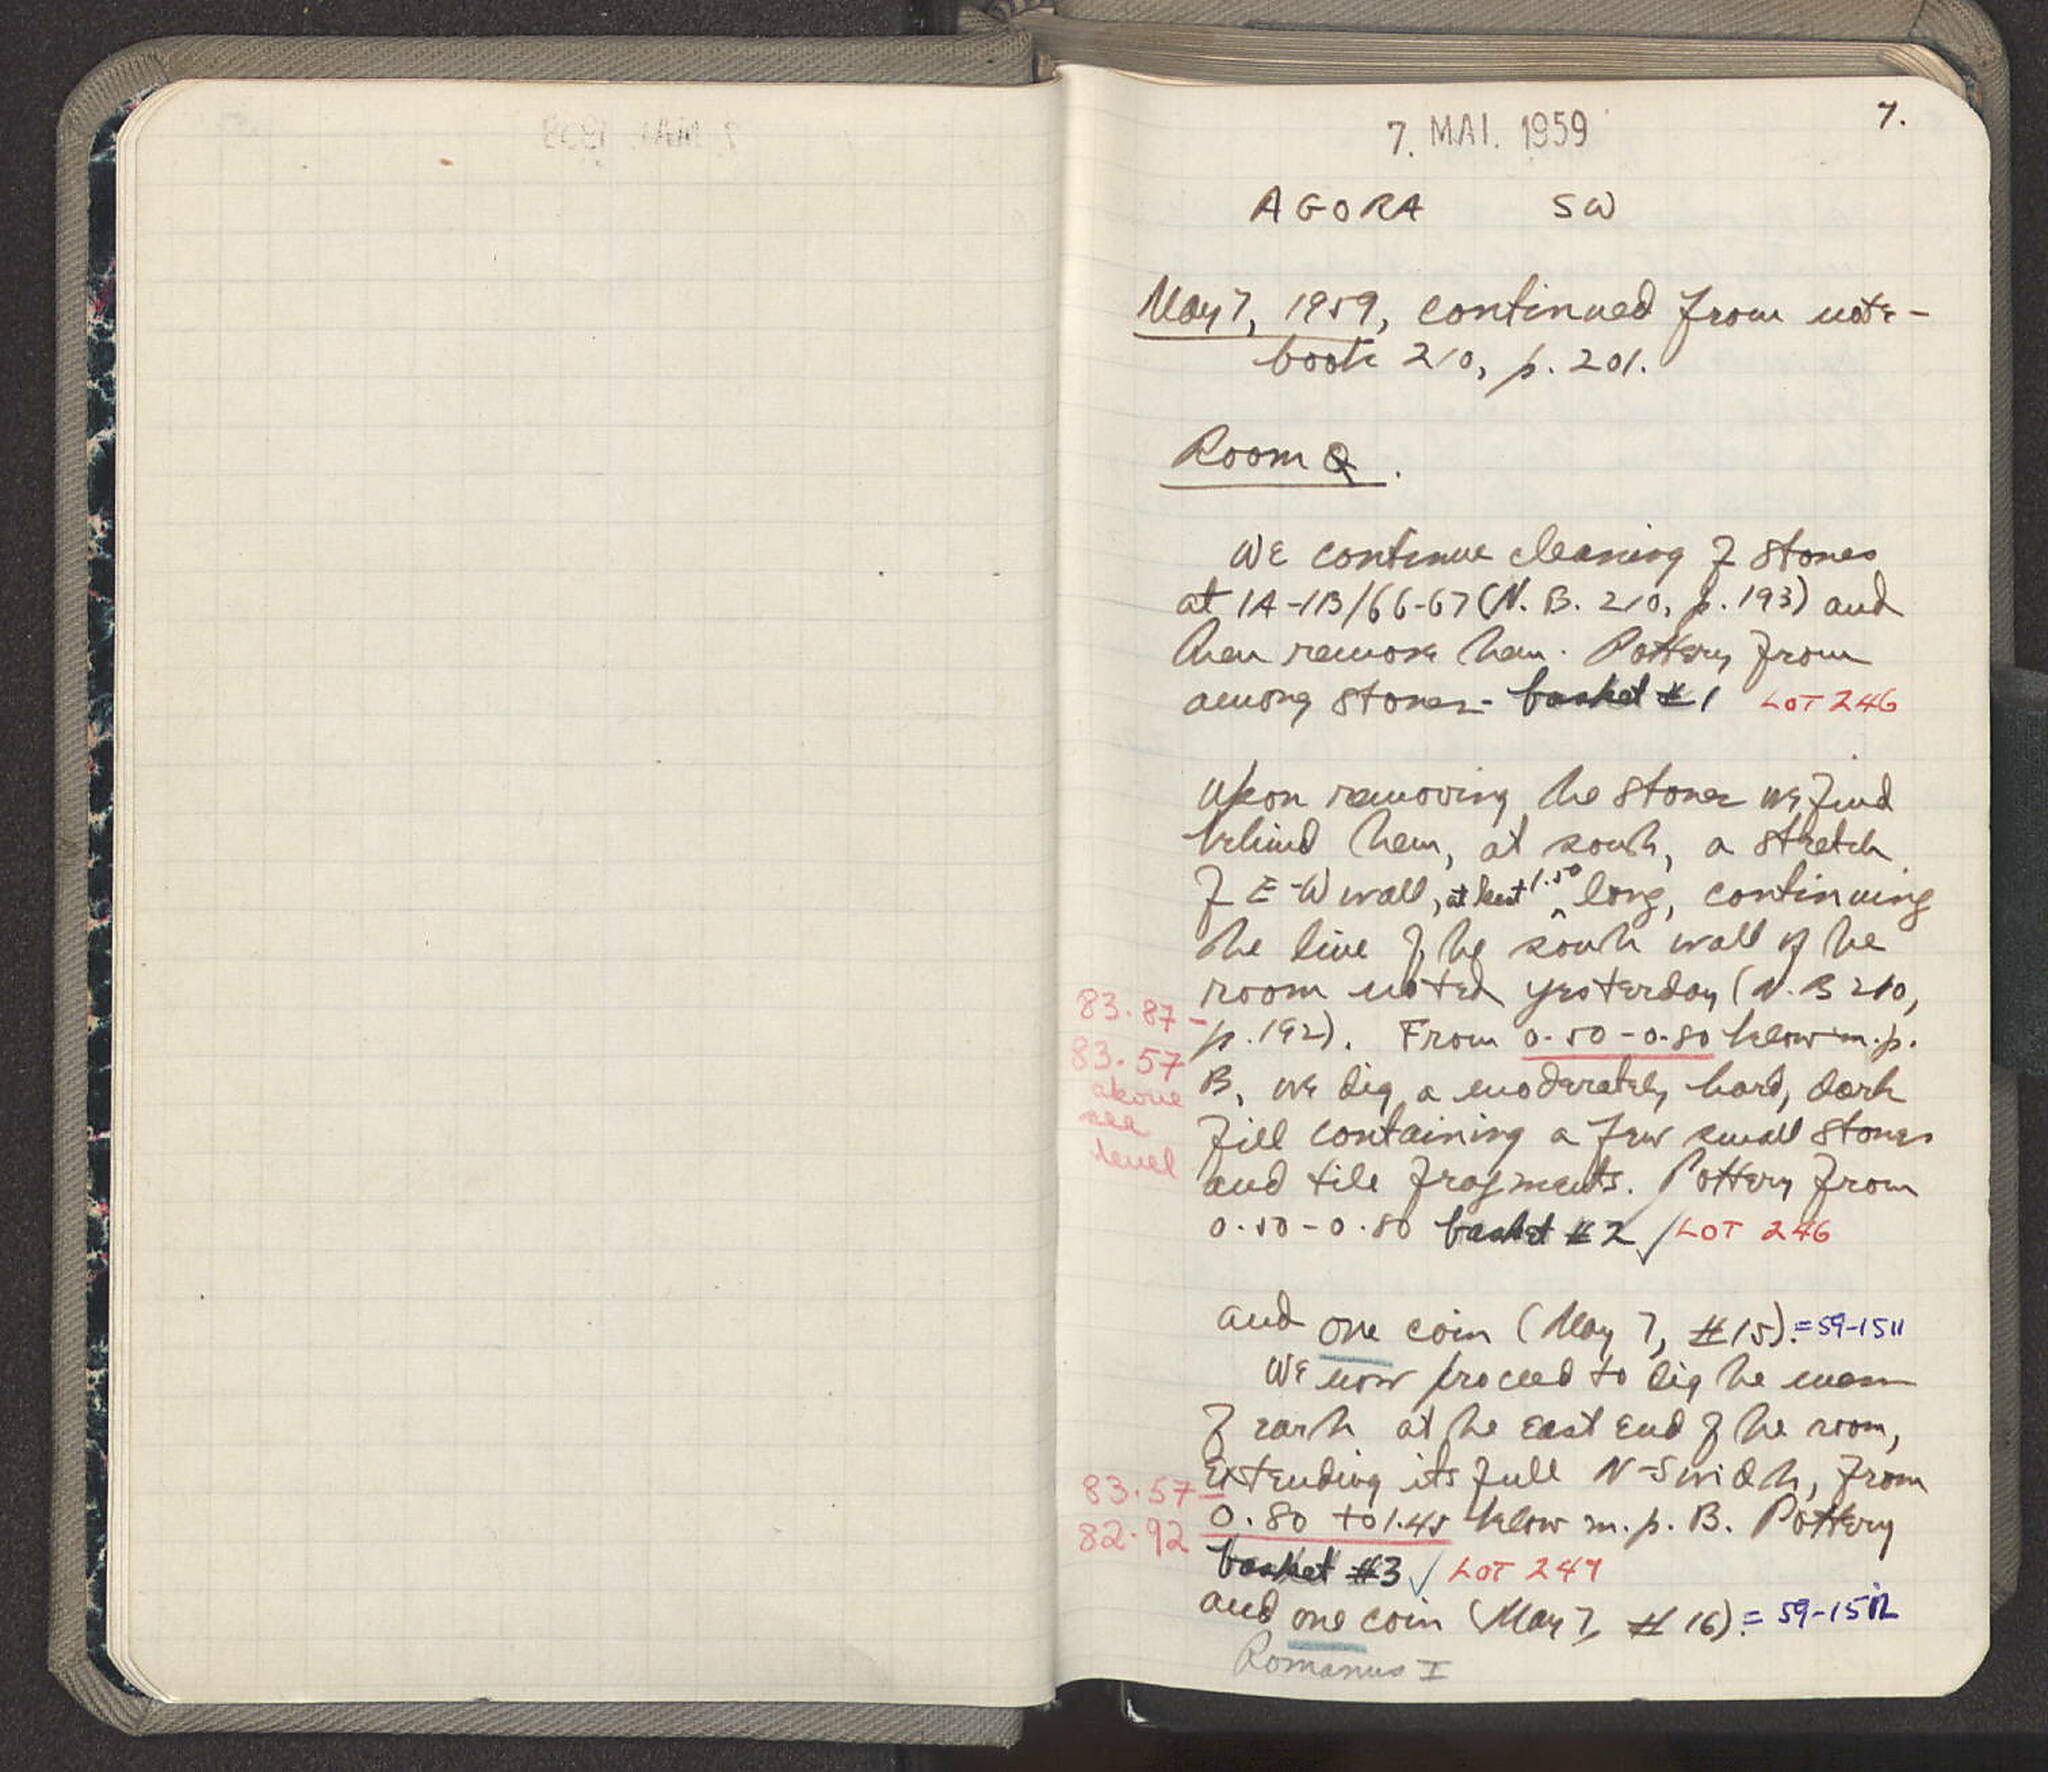 7.
7. MAI. 1959
AGORA SW
May 7, 1959, continued from note-
book 210, p. 201.
Room Q.
We continue cleaning of stones
at 1A-1B/66-67 (N.B. 210, p. 193) and
then remove them. Pottery from
among stones - basket #1 LOT 246
Upon removing the stones we find
behind them, at south, a stretch
of E-W wall, at least 1.50 long, continuing
the line of the south wall of the
room noted yesterday (N.B 210,
83.87 - p. 192). From 0.50-0.80 below m.p.
83.57 above sea level
B, we dig a moderately hard, dark
fill containing a few small stones
and tile fragments. Pottery from
0.50-0.80 basket #2 ✓ LOT 246
and one coin (May 7, #15). = 59-1511
We now proceed to dig the mass
of earth at the east end of the room,
extending its full N-S width, from
83.57 - 82.92
0.80 to 1.45 below m.p. B. Pottery
basket #3 ✓ LOT 247
and one coin (May 7, #16). = 59-1512
Romanus I